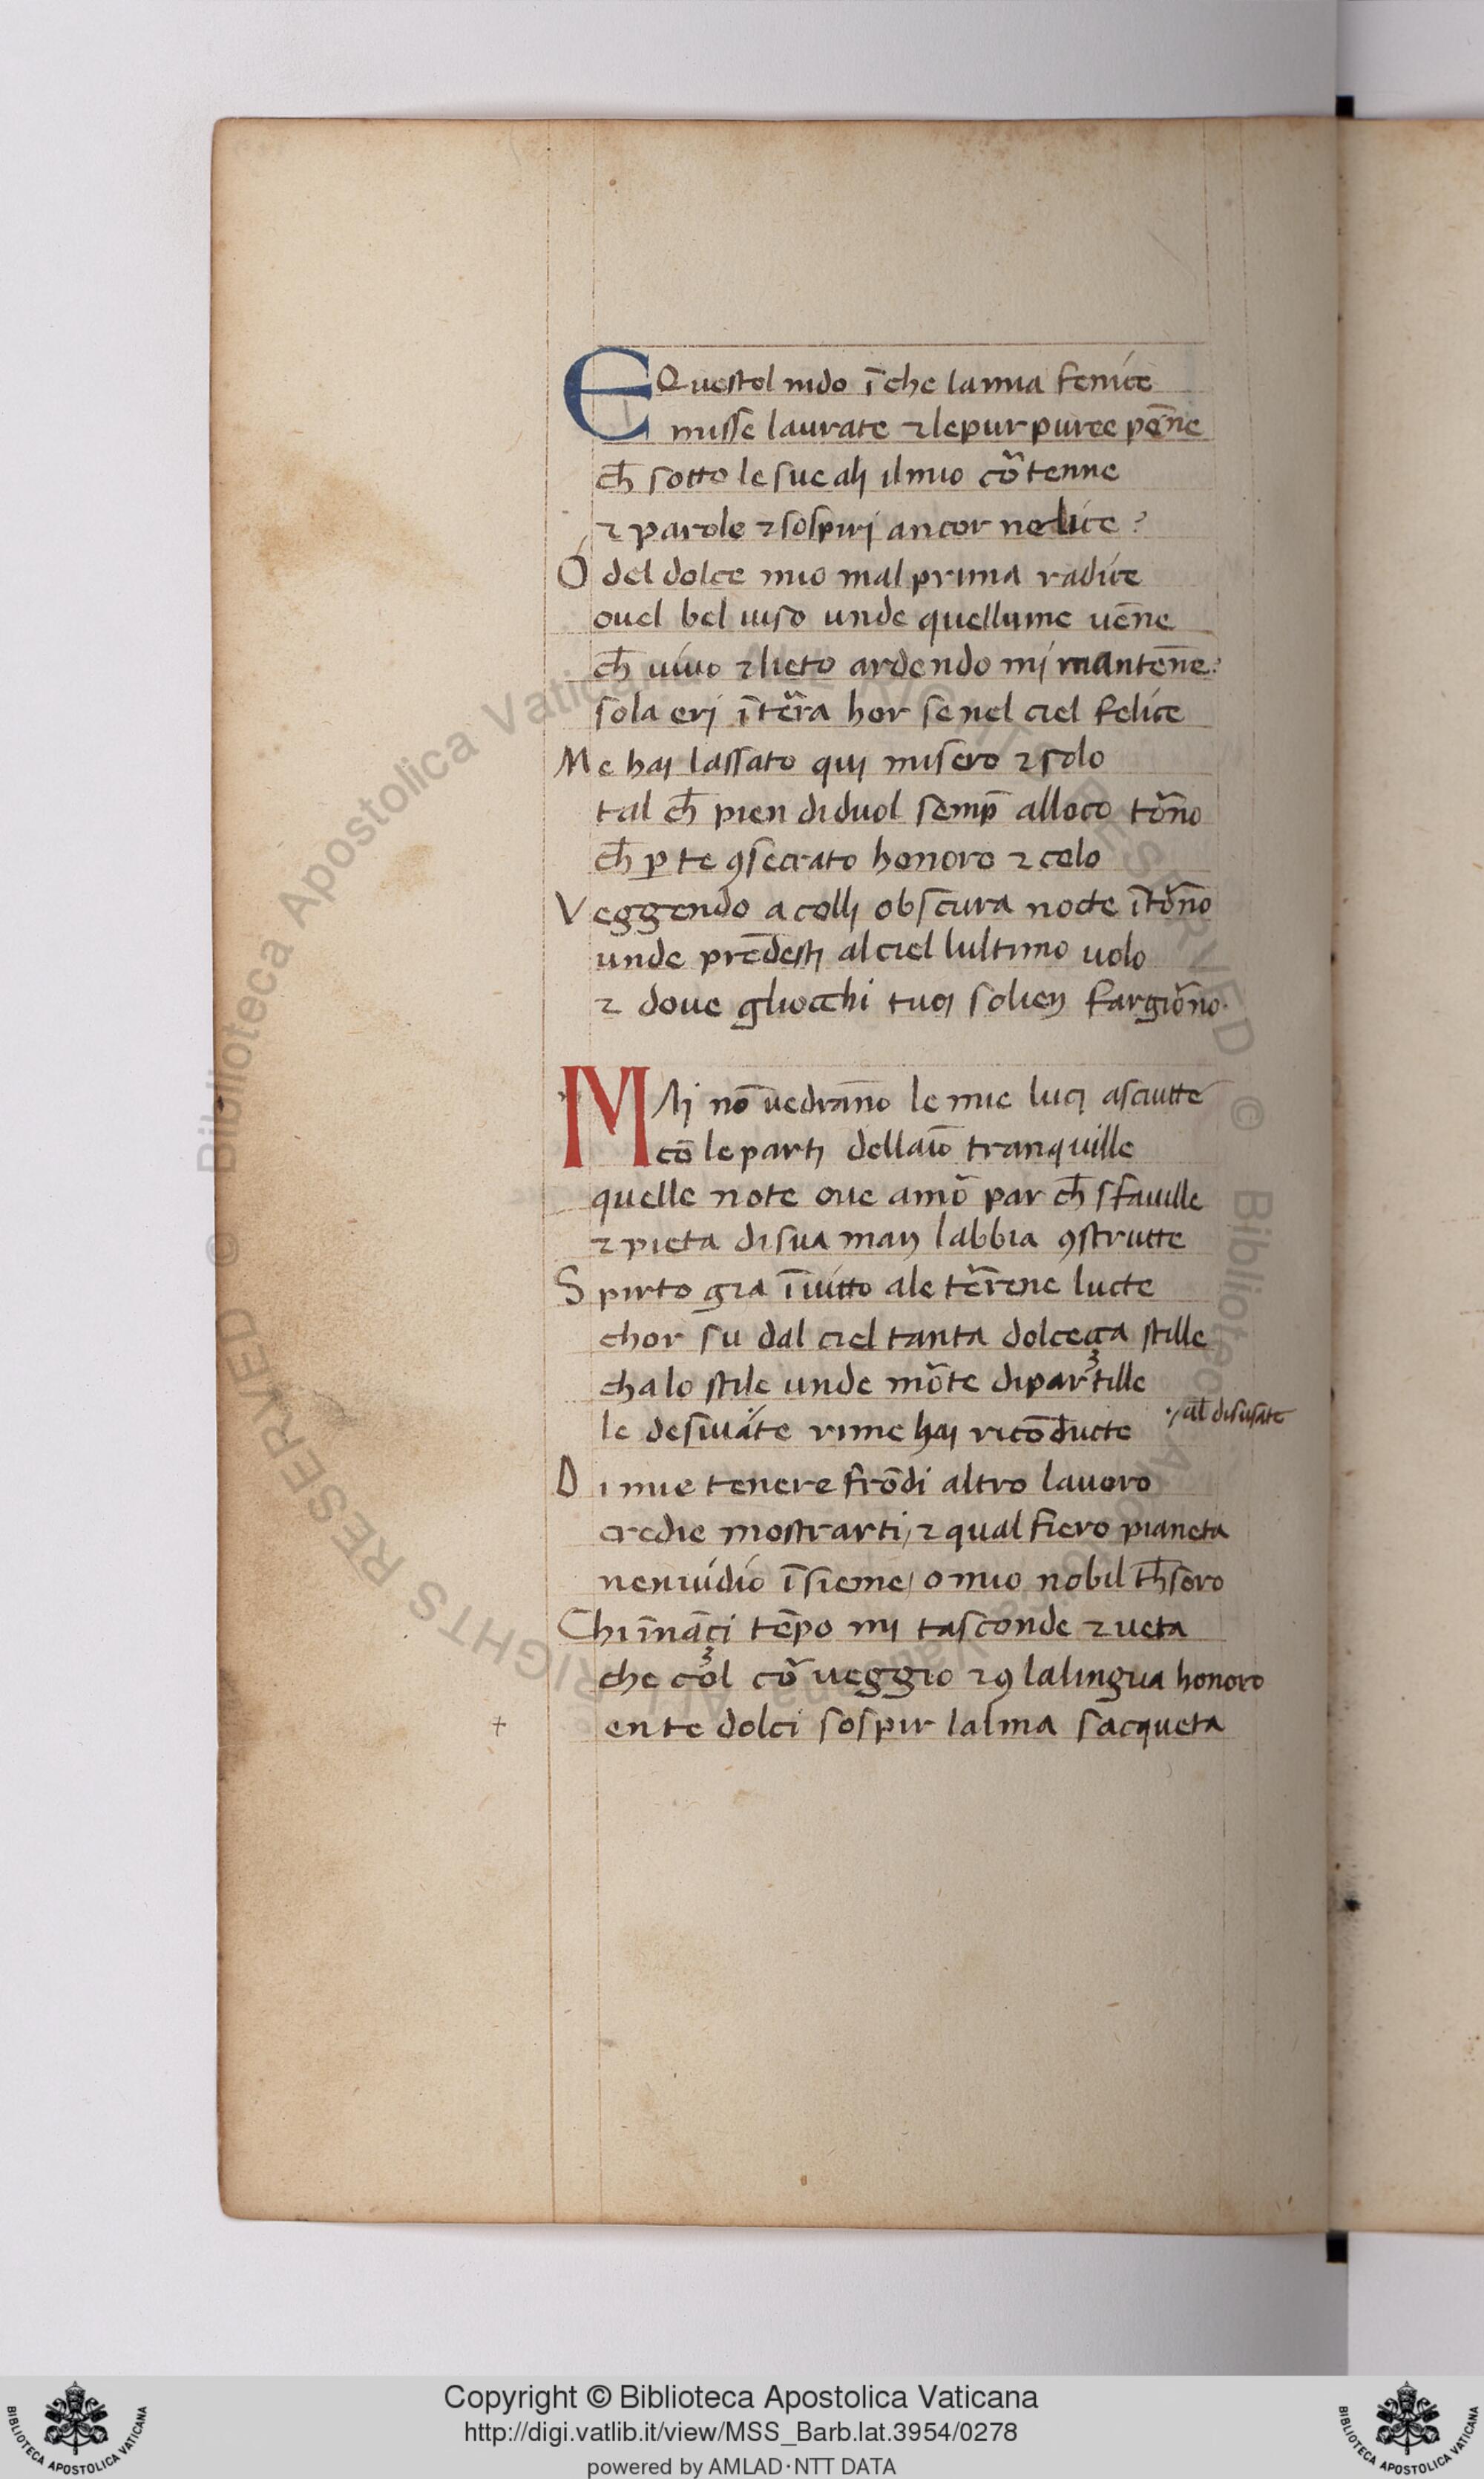 E Questol nido ī che lamia fenice
misse laurate ⁊ lepurpuree pēne
ch̄ sotto le sue alj il mio cõ tenne
⁊ parole ⁊ sospirj ancor nelice?
O del dolce mio mal prima radice
ouel bel uiso unde quellume uēne
ch̄ uiuo ⁊ lieto ardendo mi mantēne?
sola erj ī tēra hor se nel ciel felice
Me haj lassato quj misero ⁊ solo
tal ch̄ pien di duol semp̄ alloco tõno
ch̄ ꝑ te ꝯsecrato honoro ⁊ colo
Veggendo a collj obscura nocte ītõno
unde prēdestj al ciel lultimo uolo
⁊ doue gliocchi tuoj solien fargiõno.
MAj nō uedrāno le mie lucj asciutte
cō le partj dellaīo tranquille
quelle note oue amõ par ch̄ sfauille
⁊ pieta di sua man labbia ꝯstrutte
Spirto gia īuitto ale tērene lucte
chor su dal ciel tanta dolceçça stille
cha lo stile unde mõte dipartille
le desuiate rime haj ricōducte
·/ al̄ disusate
Di mie tenere frōdi altro lauoro
credie mostrarti / ⁊ qual fiero pianeta
neniuidio ī sieme / o mio nobil th̄soro
Chi īnāçi tēpo mi tasconde ⁊ uieta
che col cõ ueggio ⁊ ꝯ lalingua honoro
+ en te dolci sospir lalma sacqueta
© Biblioteca Apostolica Vaticana ALL RIGHTS RESERVED © Biblioteca Apostolica Vaticana ALL RIGHTS RESERVED
Copyright © Biblioteca Apostolica Vaticana
http://digi.vatlib.it/view/MSS_Barb.lat.3954/0278
powered by AMLAD·NTT DATA
BIBLIOTECA APOSTOLICA VATICANA
BIBLIOTECA APOSTOLICA VATICANA